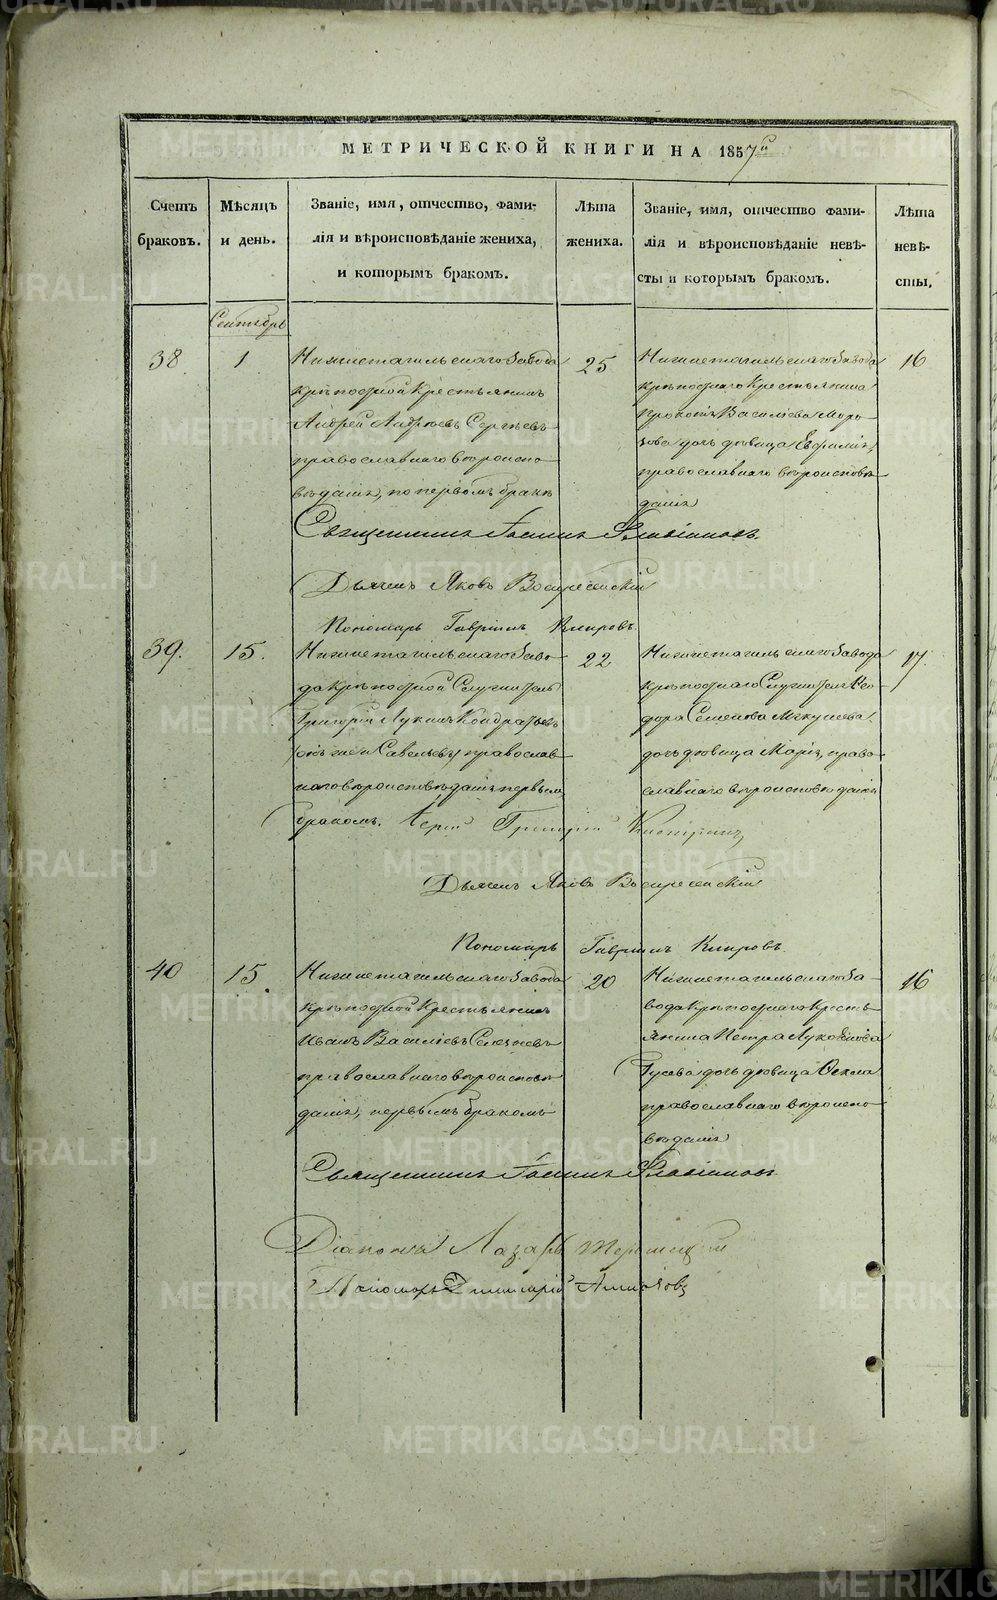 МЕТРИЧЕСКОЙ КНИГИ НА 1857й
Счетъ браковъ.
Мѣсяцъ и день.
Званіе, имя, отчество, фами-
лія и вѣроисповѣданіе жениха,
и которымъ бракомъ.
Лѣта жениха.
Званіе, имя, отчество фами-
лія и вѣроисповѣданіе невѣ-
сты и которымъ бракомъ.
Лѣта невѣ-
сты.
Сентябрь
38
1
Нижнетагильскаго Завода
крѣпостной Крестьянинъ
Андрей Андреевъ Сергѣевъ
православнаго вѣроиспо-
вѣданія, по первомъ бракѣ
25
Нижнетагильскаго Завода
крѣпостнаго Крестьянина
Прокопія Васильева Моро-
зова дочь дѣвица Евфимія,
православнаго вѣроисповѣ-
данія
16
Священникъ Іоаннъ Флавіановъ.
Дьячекъ Яковъ Воскресенскій
Пономарь Гавріилъ Кипровъ.
39.
15.
Нижнетагильскаго Заво-
да крѣпостной Служитель
Григорій Лукинъ Кондратьевъ
(онъ же и Савельевъ) православ-
наго вѣроисповѣданія первымъ
бракомъ.
22
Нижнетагильскаго Завода
крѣпостнаго Служителя Ѳео-
дора Семенова
дочь дѣвица Марія, право-
славнаго вѣроисповѣданія
17.
Іерей Григорій
Дьячекъ Яковъ Воскресенскій
Пономарь Гавріилъ Кипровъ.
40
15.
Нижнетагильскаго Завода
крѣпостной Крестьянинъ
Иванъ Васильевъ Селезневъ
православнаго вѣроисповѣ-
данія, первымъ бракомъ
20
Нижнетагильскаго За-
вода крѣпостнаго Кресть-
янина Петра Луковникова
Гусева дочь дѣвица Ѳекла
православнаго вѣроиспо-
вѣданія
16
Священникъ Іоаннъ Флавіановъ
Діаконъ Лазарь
Пономарь Димитрій
METRIKI.GASO-URAL.RU